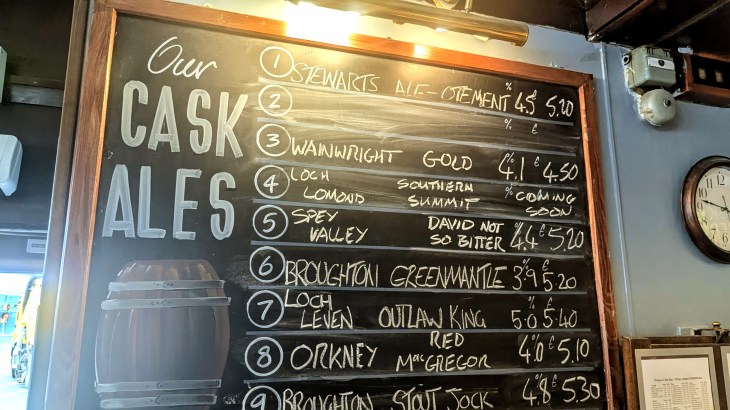 Our
CASK
ALES
1 STEWARTS ALE-OTEMENT % 4.5 £ 5.20
2 % £
3 WAINWRIGHT GOLD % 4.1 £ 4.50
4 LOCH LOMOND SOUTHERN SUMMIT % COMING SOON
5 SPEY VALLEY DAVID NOT SO BITTER % 4.4 £ 5.20
6 BROUGHTON GREENMANTLE % 3.9 £ 5.20
7 LOCH LEVEN OUTLAW KING % 5.0 £ 5.40
8 ORKNEY RED MACGREGOR % 4.0 £ 5.10
9 BROUGHTON STOUT JOCK % 4.8 £ 5.30